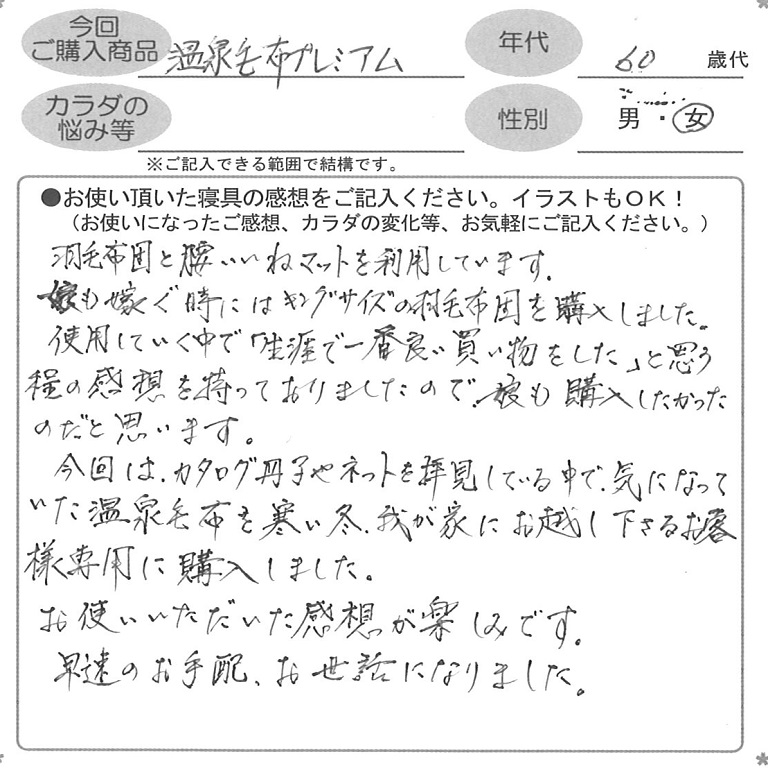 今回
ご購入商品
温泉毛布プレミアム
年代
60 歳代
カラダの
悩み等
性別
男・女
※ご記入できる範囲で結構です。
●お使い頂いた寝具の感想をご記入ください。イラストもOK!
(お使いになったご感想、カラダの変化等、お気軽にご記入ください。)
羽毛布団と腰いいねマットを利用しています。
娘も嫁ぐ時にはキングサイズの羽毛布団を購入しました。
使用していく中で「生涯で一番良い買い物をした」と思う
程の感想を持っておりましたので、娘も購入したかった
のだと思います。
今回は、カタログ冊子やネットを拝見している中で、気になって
いた温泉毛布を寒い冬、我が家にお越し下さるお客
様専用に購入しました。
お使いいただいた感想が楽しみです。
早速のお手配、お世話になりました。